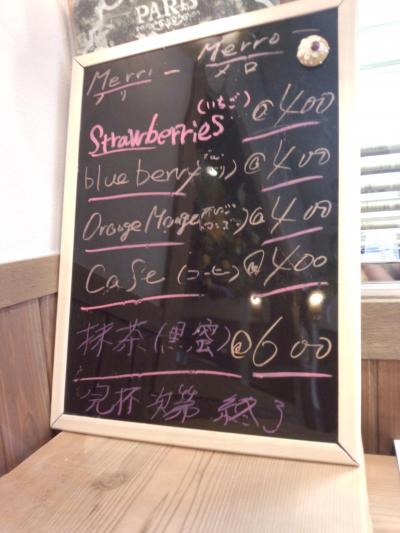 PARIS
Merri - Merro
メリ メロ
Strawberries (いちご) @400
blueberry @400
Orange Mango @400
Cafe (コーヒー) @400
抹茶(黒蜜)@600
完杯次第 終了